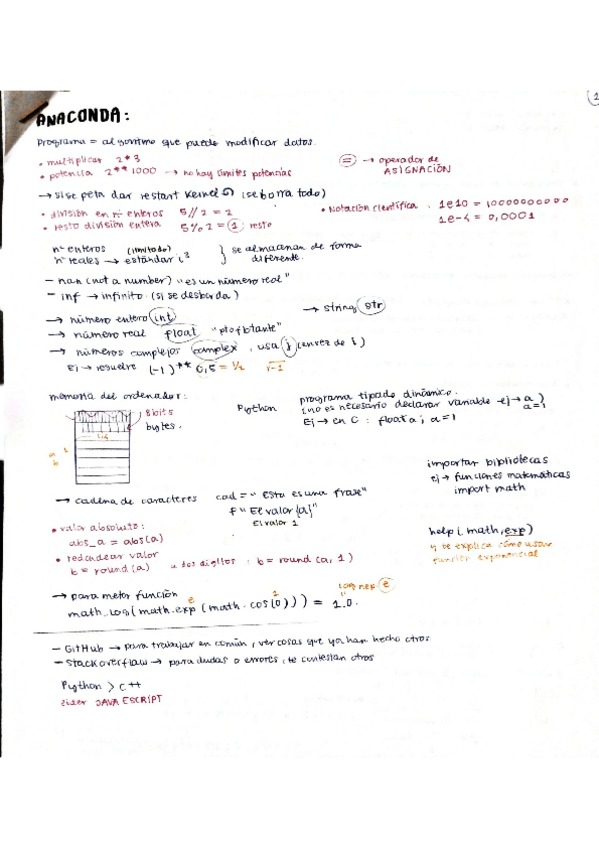 1
ANACONDA:
Programa = algoritmo que puede modificar datos.
• multiplicar 2*3
• potencia 2**1000 → no hay límites potencias
= → operador de ASIGNACIÓN
→ si se peta dar restart Kernel (se borra todo)
• división en nº enteros 5//2 = 2
• resto división entera 5%2 = 1 resto
• Notación científica. 1e10 = 10000000000
1e-4 = 0,0001
nº enteros (limitado)
nº reales → estándar i³
} se almacenan de forma diferente.
- nan (not a number) "es un número real"
- inf → infinito (si se desborda)
→ string str
→ número entero int
→ número real float "pto flotante"
→ números complejos complex, usa j (en vez de i)
Ej → resuelve (-1)** 0,5 = 1/2 √-1
memoria del ordenador:
8 bits
bytes.
64
a 1
b
Python
programa tipado dinámico.
(no es necesario declarar variable → ej → a a=1)
Ej → en C : float a; a=1
importar bibliotecas
ej → funciones matemáticas
import math
→ cadena de caracteres cad = "Esto es una frase"
f "El valor {a}"
El valor 1
• valor absoluto:
abs_a = abs(a)
• redondear valor
b = round(a) a dos dígitos: b = round(a, 1)
help(math.exp)
y se explica cómo usar función exponencial
→ para meter función
e 1 log nep e
math.log(math.exp(math.cos(0))) = 1.0.
- GitHub → para trabajar en común, ver cosas que ya han hecho otros
- Stackoverflow → para dudas o errores, te contestan otros
Python > C++
líder JAVA ESCRIPT